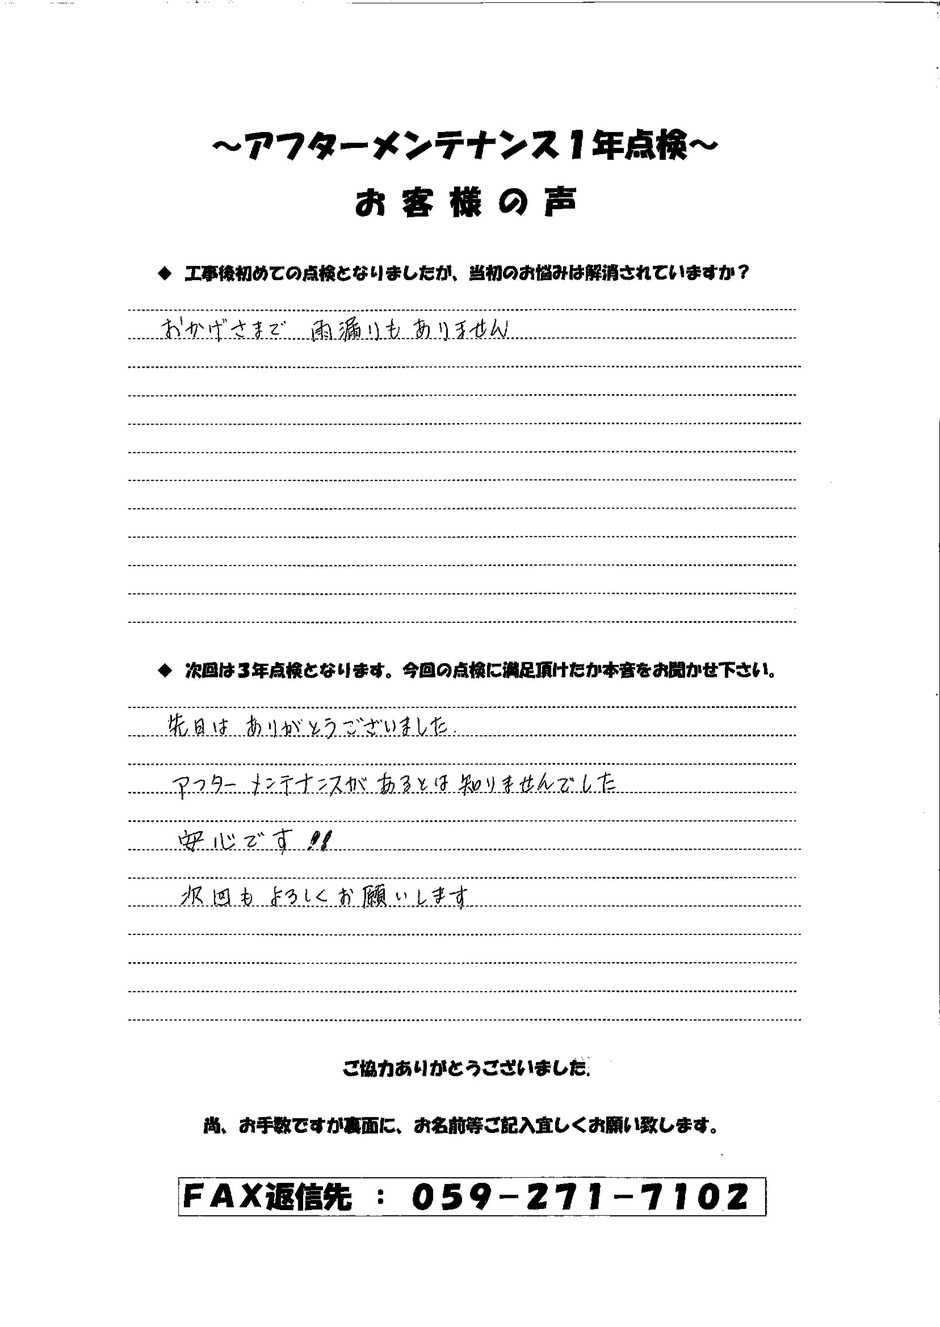 ～アフターメンテナンス１年点検～
お客様の声
◆ 工事後初めての点検となりましたが、当初のお悩みは解消されていますか？
おかげさまで 雨漏りもありません
◆ 次回は３年点検となります。今回の点検に満足頂けたか本音をお聞かせ下さい。
先日は ありがとうございました.
アフターメンテナンスがあるとは知りませんでした
安心です!!
次回もよろしくお願いします
ご協力ありがとうございました.
尚、お手数ですが裏面に、お名前等ご記入宜しくお願い致します。
ＦＡＸ返信先 ： ０５９－２７１－７１０２